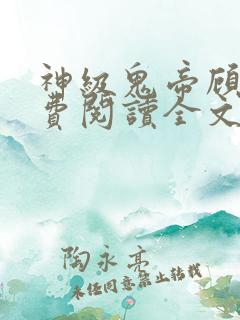 神級鬼帝顾
費閱讀全文
陶永亮
未任同意禁止转载